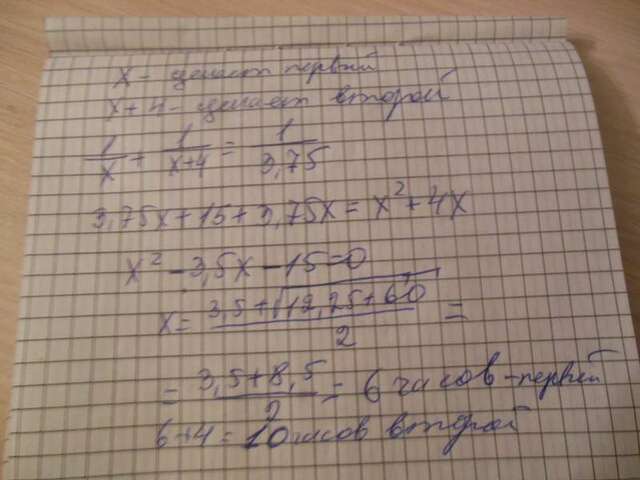 x - делает первый
x+4 - делает второй
1/x + 1/(x+4) = 1/3,75
3,75x+15+3,75x = x²+4x
x² - 3,5x - 15 = 0
x = (3,5+√(12,25+60))/2 =
= (3,5+8,5)/2 = 6 часов - первый
6+4 = 10 часов второй